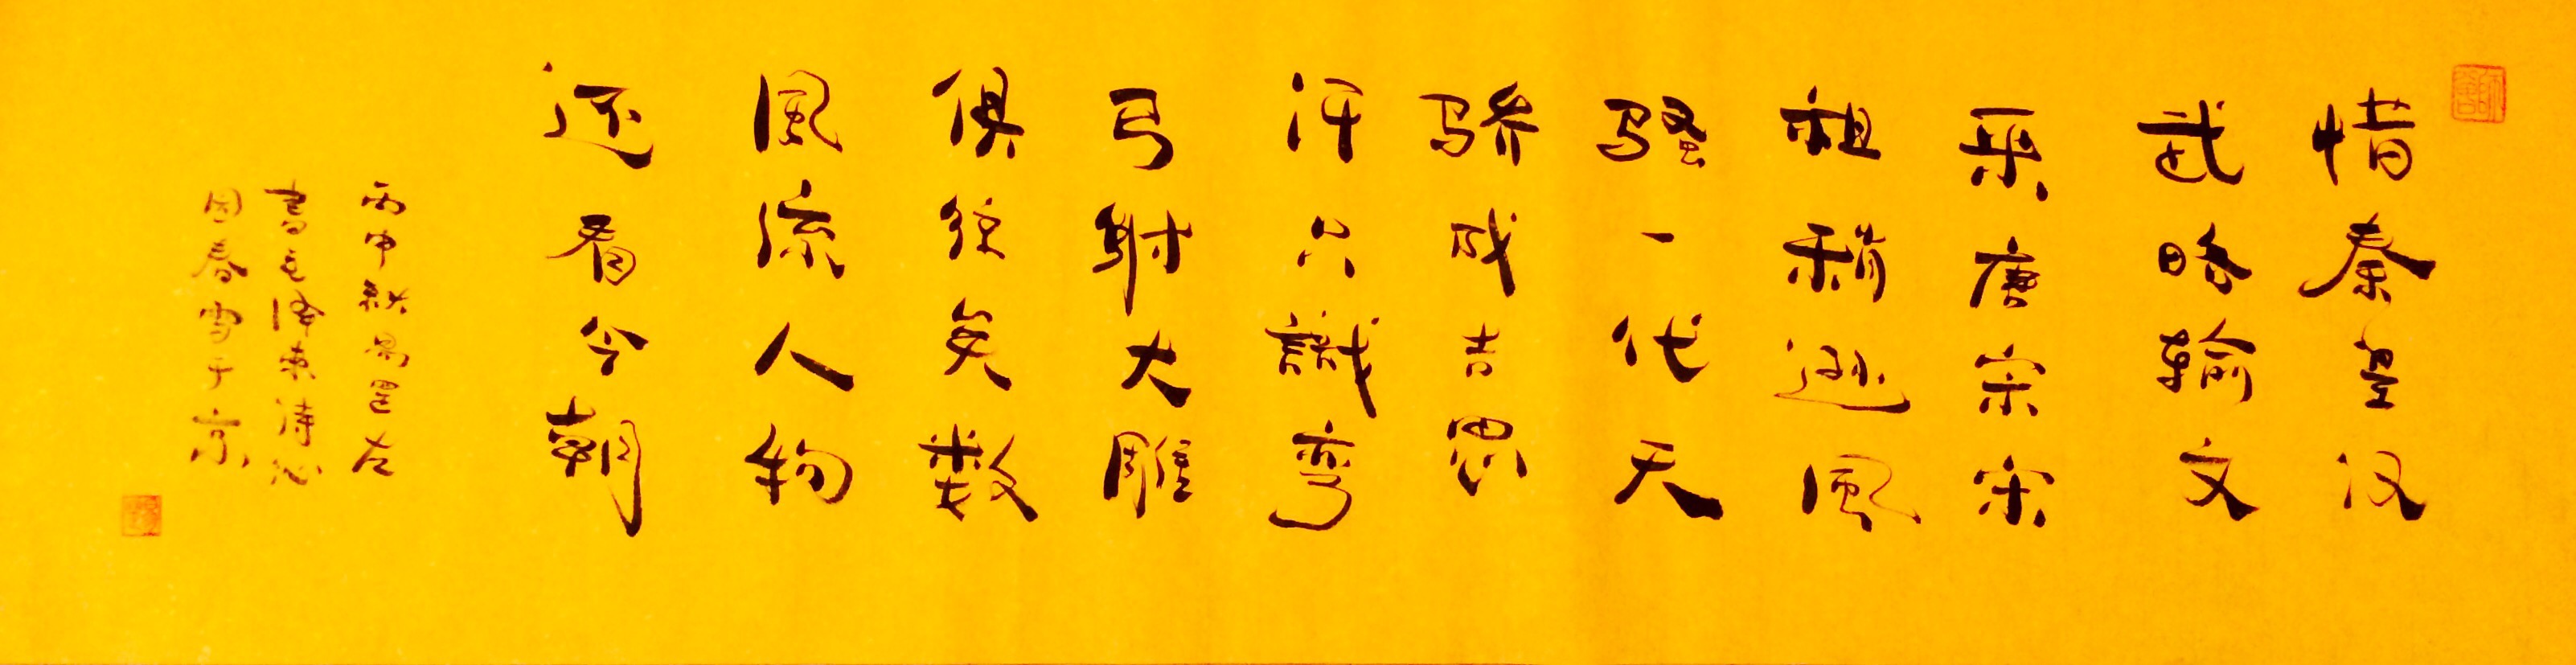 惜秦皇汉
武略輸文
采唐宗宋
祖稍遜風
骚一代天
骄成吉思
汗只識弯
弓射大雕
俱往矣数
風流人物
还看今朝
丙申秋易罡左
書毛泽東诗沁
园春雪于京